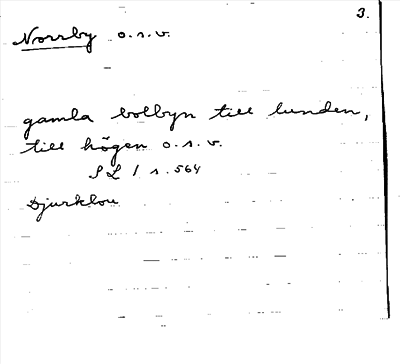 3.
Norrby o.s.v.
gamla bolbyn till lunden,
till högen o.s.v.
SL 1 s. 564
Djurklou